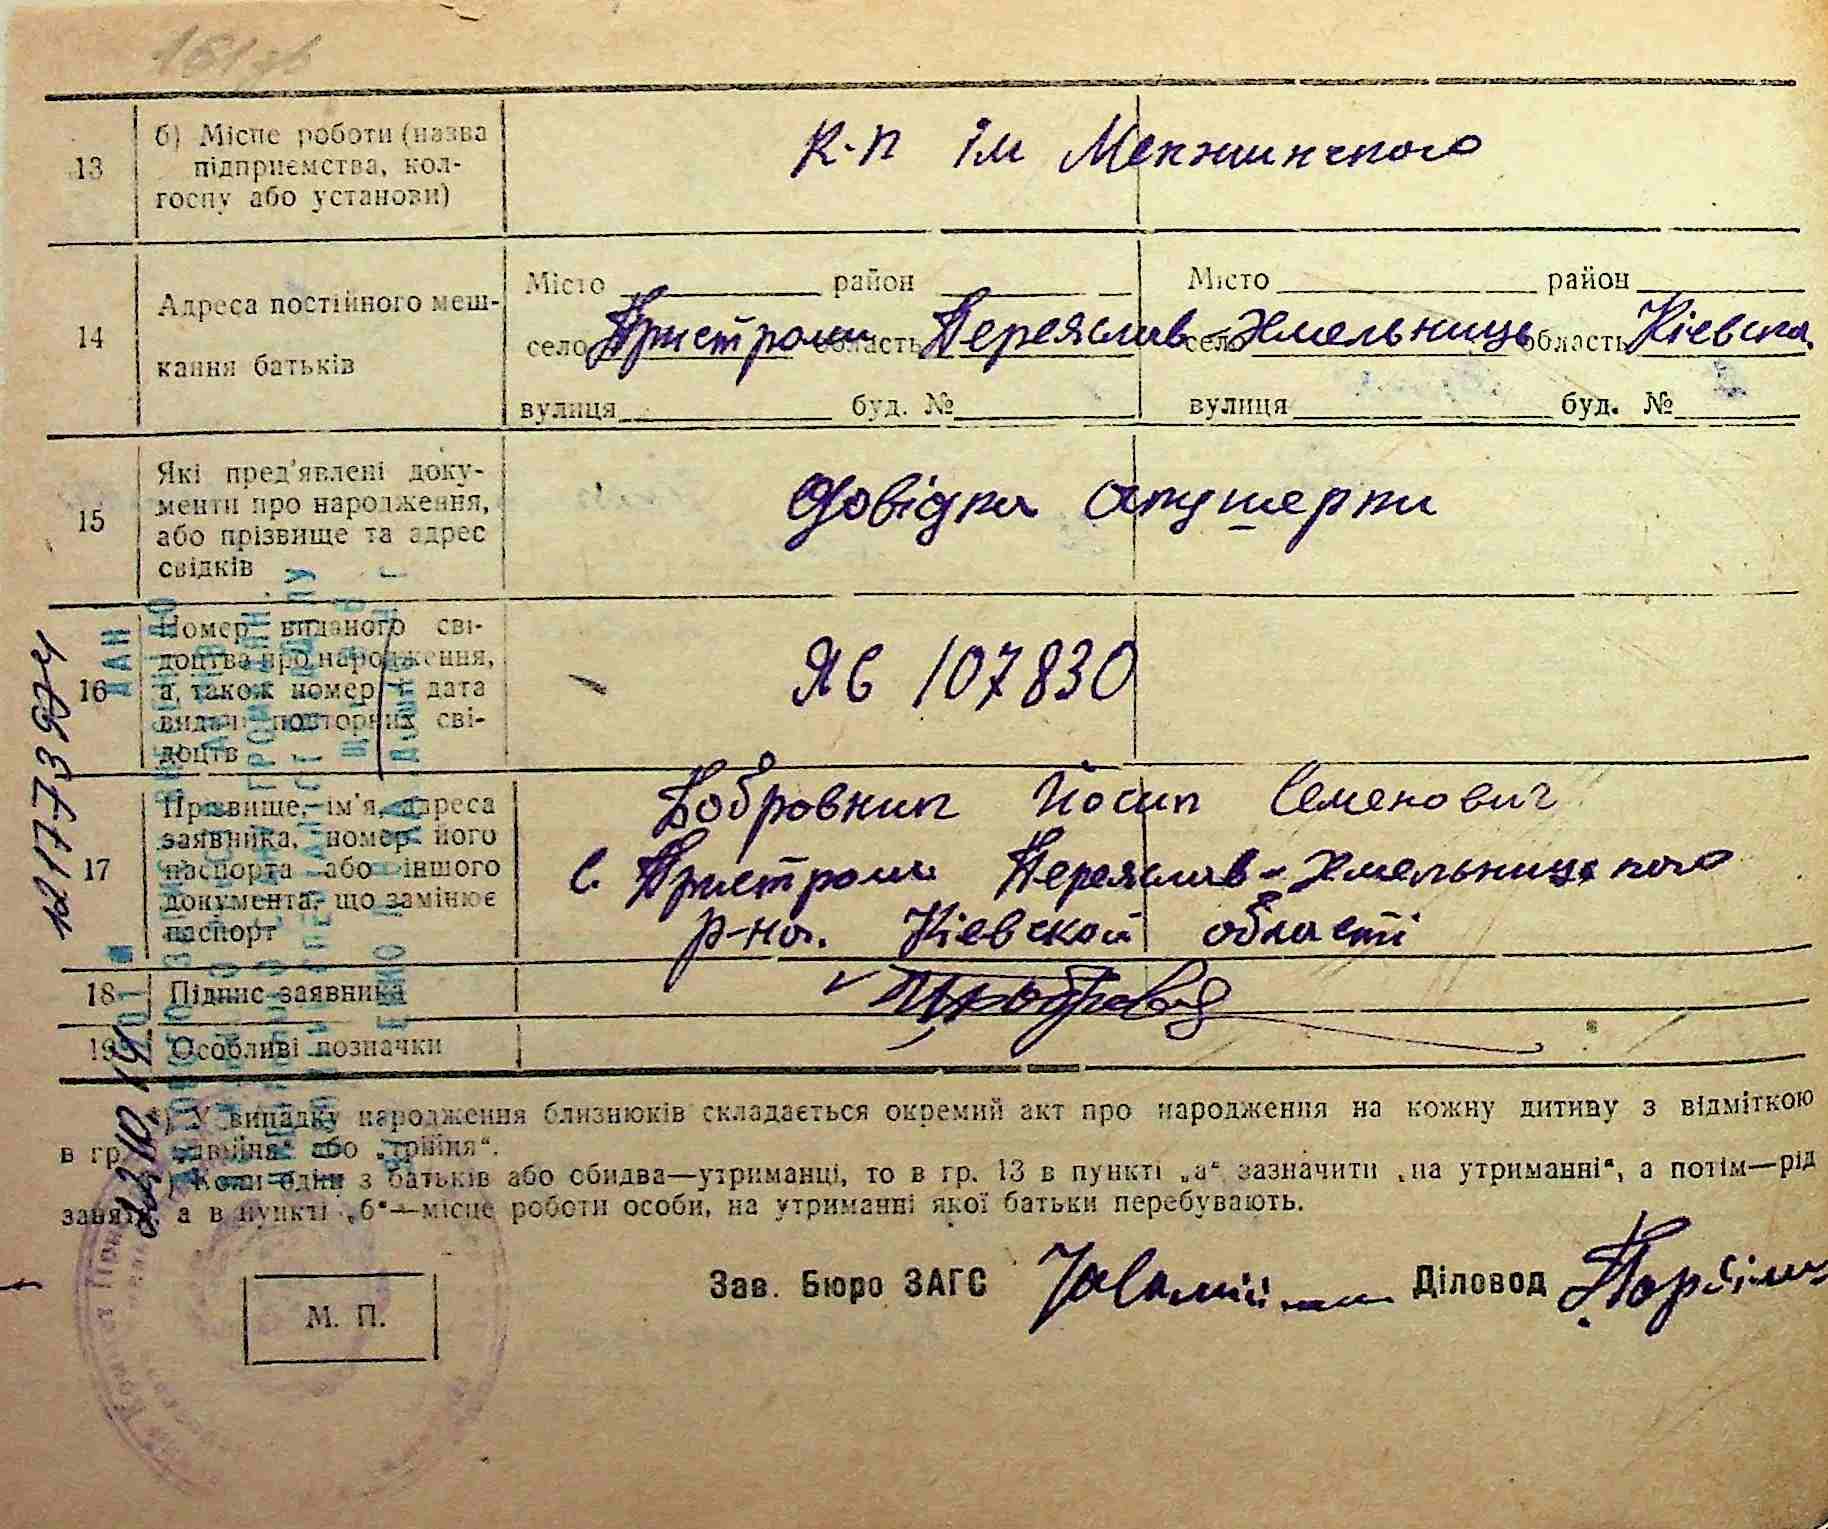 13
б) Місце роботи (назва
підприємства, кол-
госпу або установи)
К-п ім Менжинского
14
Адреса постійного меш-
кання батьків
Місто район Місто район
село Пристроми область Переяслав село Хмельниць область Кіевска
вулиця буд. № вулиця буд. №
15
Які пред'явлені доку-
менти про народження,
або прізвище та адрес
свідків
Довідка акушерки
16
Номер виданого сві-
доцтва про народження,
а також номер і дата
видачі повторних сві-
доцтв
ЯБ 107830
17
Прізвище, ім'я, адреса
заявника, номер його
паспорта або іншого
документа, що замінює
паспорт
Бобровник Йосип Семенович
с. Пристроми Переяслав-Хмельницкого
р-на. Кіевской області
18
Підпис заявника
19
Особливі позначки
*) У випадку народження близнюків складається окремий акт про народження на кожну дитину з відміткою
в гр. „двійня“ або „трійня“.
Коли один з батьків або обидва—утриманці, то в гр. 13 в пункті „а“ зазначити „на утриманні“, а потім—рід
занять, а в пункті „б“—місце роботи особи, на утриманні якої батьки перебувають.
Зав. Бюро ЗАГС
Діловод
М. П.